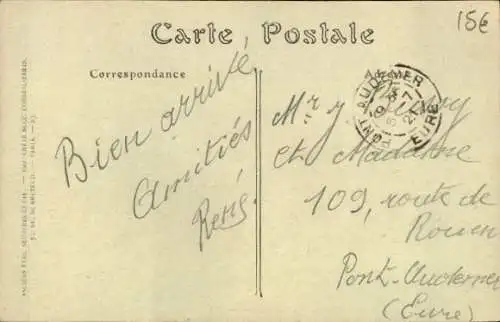 15€
Carte Postale
Correspondance
Bien arrivé
Amitiés
René
PONT-AUDEMER
EURE
Mr
et Madame
109, route de
Rouen
Pont-Audemer
(Eure)